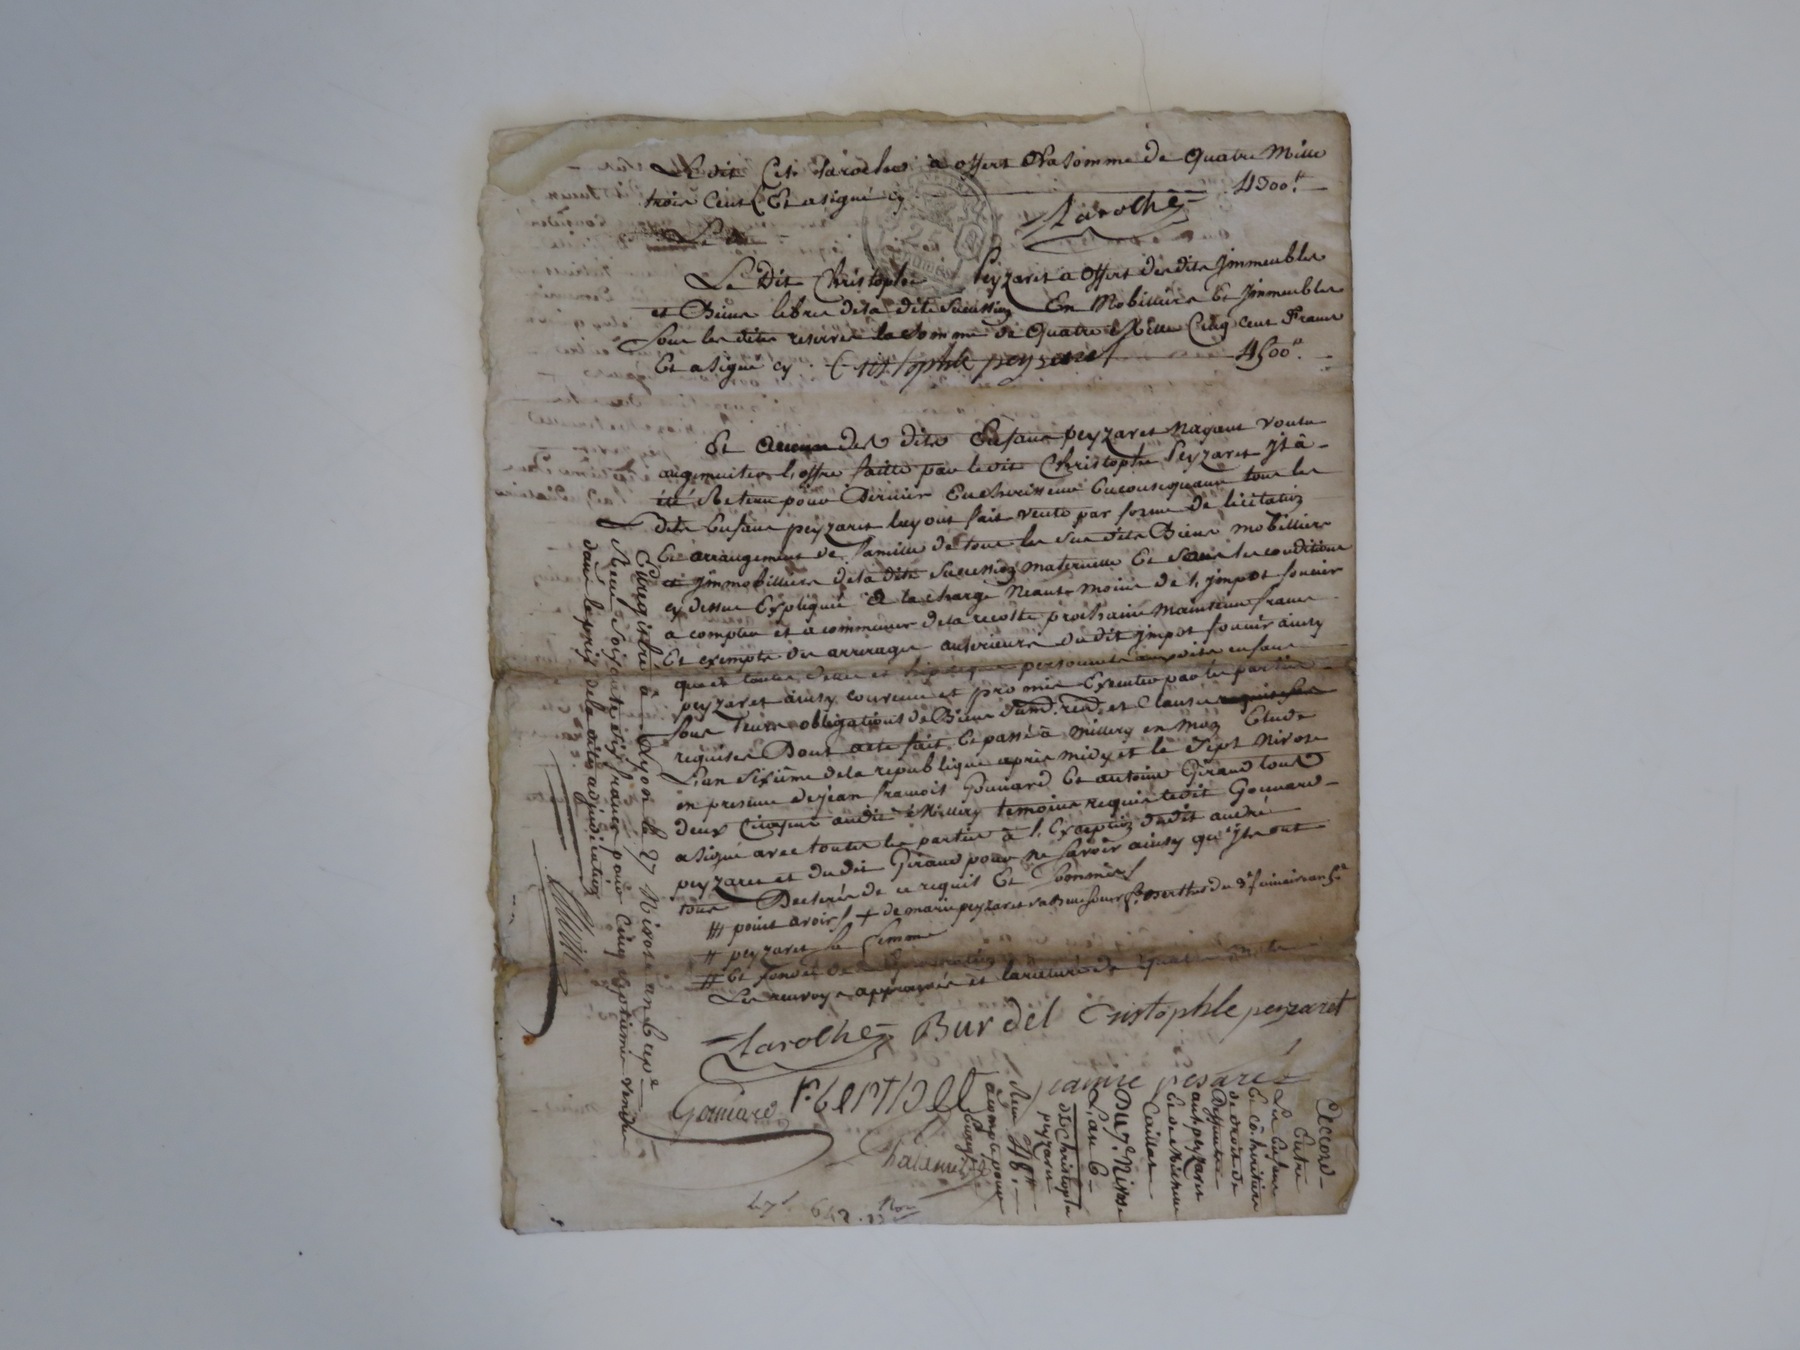 Le dit Cit. Laroche a offert la somme de quatre mille
trois cent Et a signé cy 4300.tt
Laroche
Le dit
Le dit Christophe Peyzaret a offert des dits Jmmeubles
et Biens libres de la dite succession En Mobiliers Et Jmmeubles
sous les dites reserves la somme de quatre Mille Cinq cent francs
Et a signé cy . Cristophle peyzaret 4500tt.
Et aucun des dits Enfans peyzaret Nayant voulu
augmenter l'offre faitte par le dit Christophe Peyzaret Jl à
été Retenu pour Dernier Encherisseur En consequance tous les
dits Enfans peyzaret luy ont fait vente par forme de licitation
Et arrangement de famille de tous les sus dits Biens mobilliers
et Jmmobilliers de la dite succession maternelle Et sous les conditions
cy dessus Expliquées à la charge Neant moins de l'jmpot foncier
a compter et a commencer de la recolte prochaine Maintenu franc
Et exempts des arrerages anterieurs du dit jmpot foncier ainsy
que de toutes dettes et hipoteques personnels aux dits enfans
peyzaret ainsy convenu et promis Executer par les parties
sous leurs obligations de Biens et Clauses
requises Dont acte fait Et passé à Millery en mon Etude
L'an sixième de la republique après midy et le sept Nivose
en presence de jean francois Gouuard Et antoine Giraud tous
deux Citoyens audit Millery temoins requis ledit Gouuard
a signé avec toutes les parties à l'Exception dudit andré
peyzaret et dudit Giraud pour ne savoir ainsy qu'jls ont
tous Declarés de ce requis Et sommés
point avoir de marie peyzaret
peyzaret sa femme
Et fondé de
Les renvoys approuvés et la rature de quatre
Laroche Burdel Cristophle peyzaret
Gouuard Berthet jeanne pesaret
Enregistré à Lyon le 7 Nivose an 6 rep.e
Reçu soixante dix francs pour cinq septiemes vendu
dans le prix de la dite adjudication
Accord
Entre
Les Enfans
Et Cô-heritiers
de droit de
Deffunts
peyzaret
Et de
Caillot
Du 7e Nivose
L'an 6
de Christophe
peyzaret